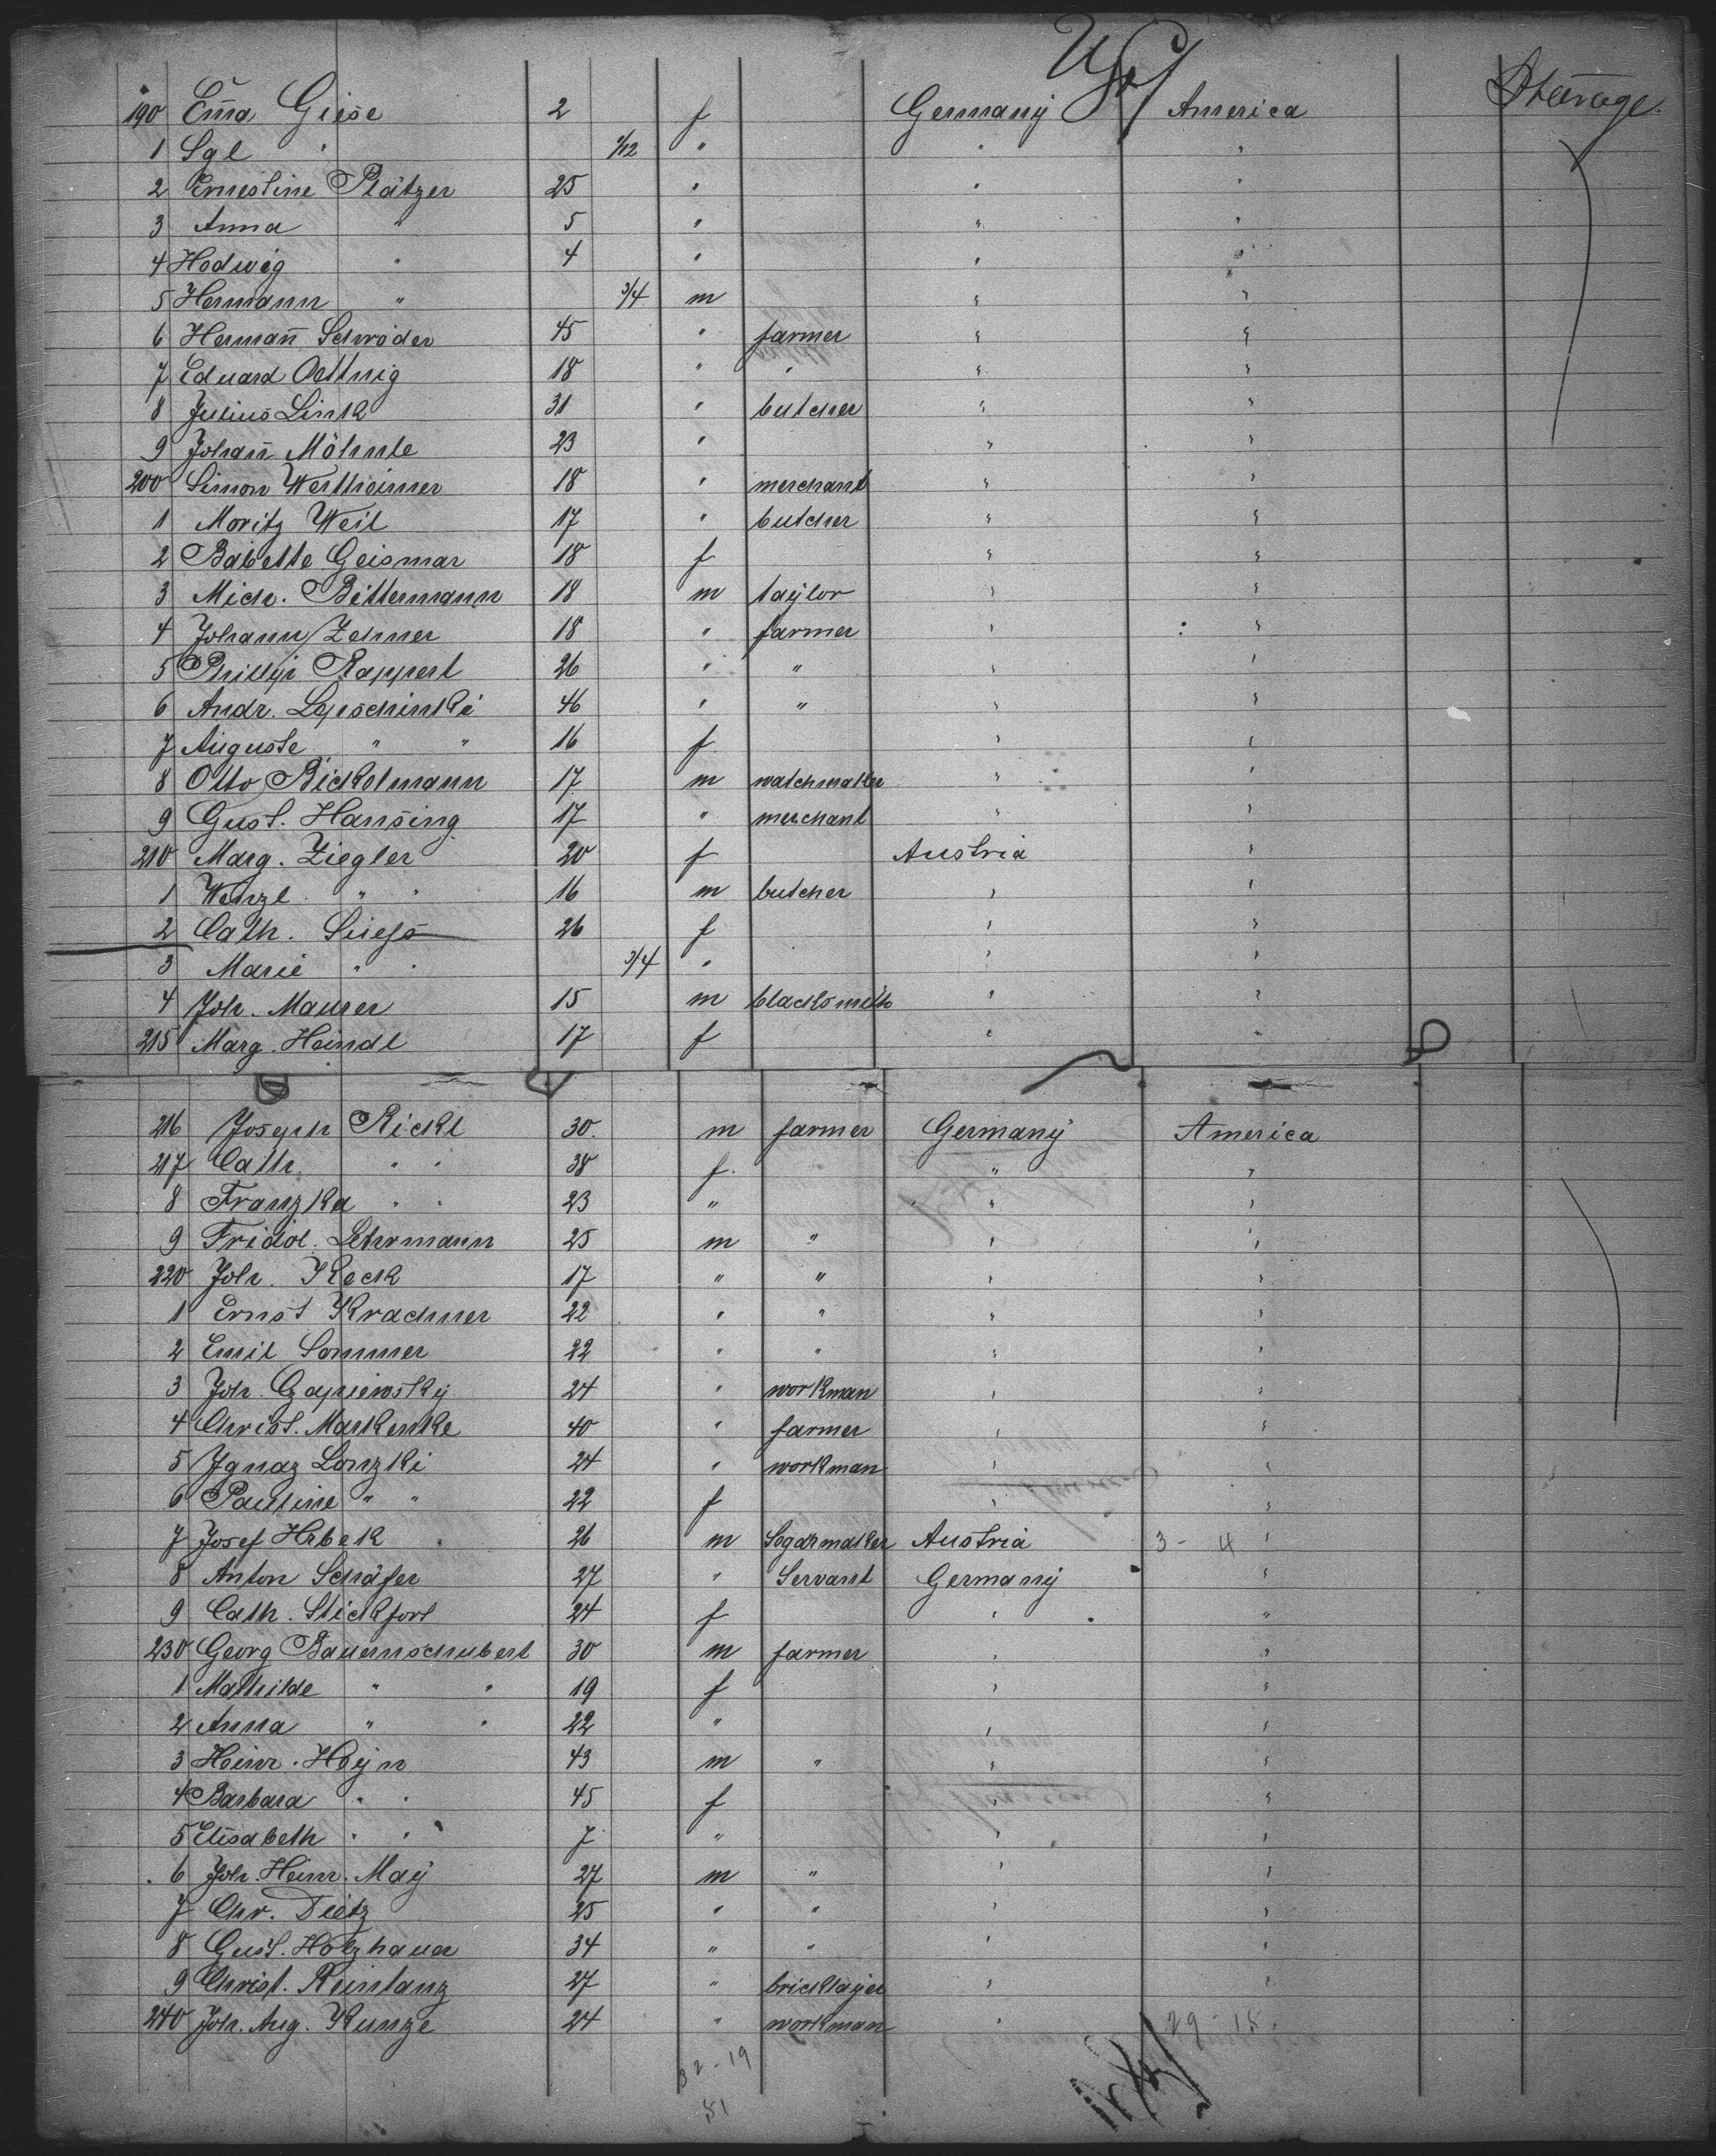 Steerage
190 Em̄a Giese 2 f Germany America
1 Sgl " " " "
2 Ernestine Plätzer 25 " " "
3 Anna " 5 " " "
4 Hedwig " 4 " " "
5 Hermann " 3/4 m " "
6 Herman̄ Schröder 45 " farmer " "
7 Eduard Oettnig 18 " " " "
8 Julius Link 31 " butcher " "
9 Johan̄ Möhnle 23 " " "
200 Simon Wertheimer 18 " merchant " "
1 Moritz Weil 17 " butcher " "
2 Babette Geismar 18 f " "
3 Mich. Bittermann 18 m taylor " "
4 Johann Zehner 18 " farmer " "
5 Phillip Rappert 26 " " " "
6 Andr. Lepschinski 46 " " " "
7 Auguste " " 16 f " "
8 Otto Bickelmann 17 m watchmaker " "
9 Gust. Hansing 17 " merchant " "
210 Marg. Ziegler 20 f Austria "
1 Wenzl " " 16 m butcher " "
2 Cath. Suess 26 f " "
3 Marie " " 3/4 " " "
4 Joh. Maurer 15 m blacksmith " "
215 Marg. Heindl 17 f " "
216 Joseph Rickl 30 m farmer Germany America
217 Cath. " " 38 f " "
8 Franzka " " 23 " " "
9 Fridol. Lehrmann 25 m " " "
220 Joh. Keck 17 " " " "
1 Ernst Krachner 22 " " " "
2 Emil Sommer 22 " " " "
3 Joh. Gapiewsky 24 " workman " "
4 Christ. Markenke 40 " farmer " "
5 Ignaz Lonzki 24 " workman " "
6 Pauline " " 22 f " "
7 Josef Hrbek 26 m Segarmaker Austria 3 - 4 "
8 Anton Schäfer 27 " Servant Germany "
9 Cath. Stickfort 24 f " "
230 Georg Bauernschubert 30 m farmer " "
1 Mathilde " " 19 f " "
2 Anna " " 22 " " "
3 Heinr. Heyn 43 m " " "
4 Barbara " " 45 f " "
5 Elisabeth " " 7 " " "
6 Joh. Heinr. May 27 m " " "
7 Chr. Dietz 25 " " " "
8 Gust. Holzhauer 34 " " " "
9 Christ. Reintanz 27 " bricklayer " "
240 Joh. Aug. Kunze 24 " workman "
29 - 15
32 - 19
51